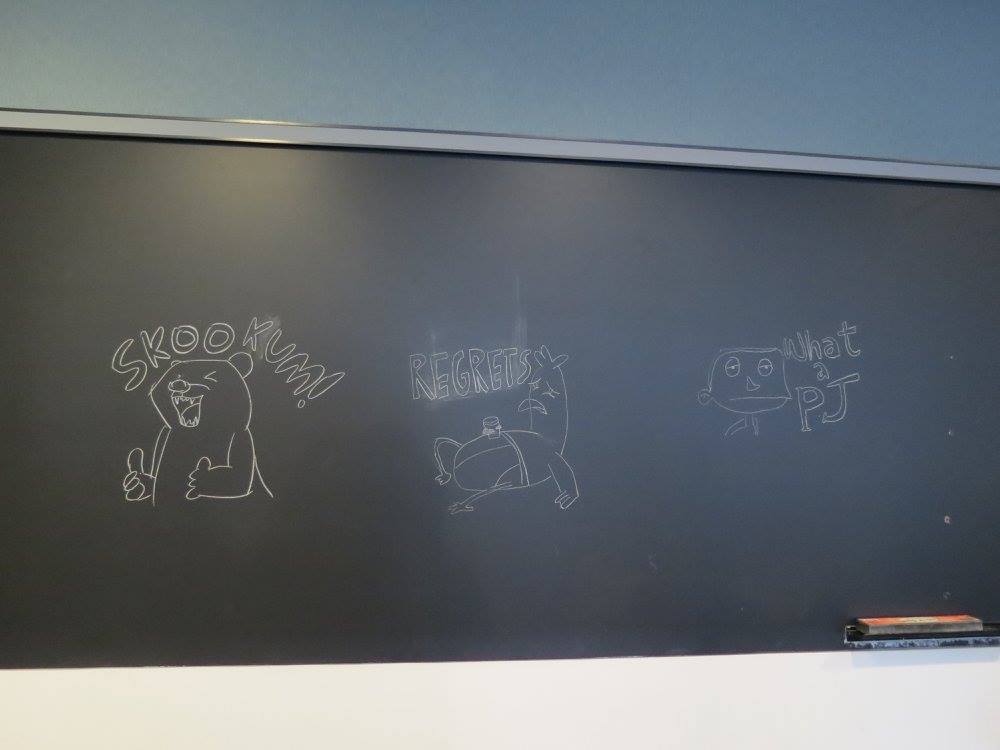 SKOOKUM!
REGRETS
What
a
PJ